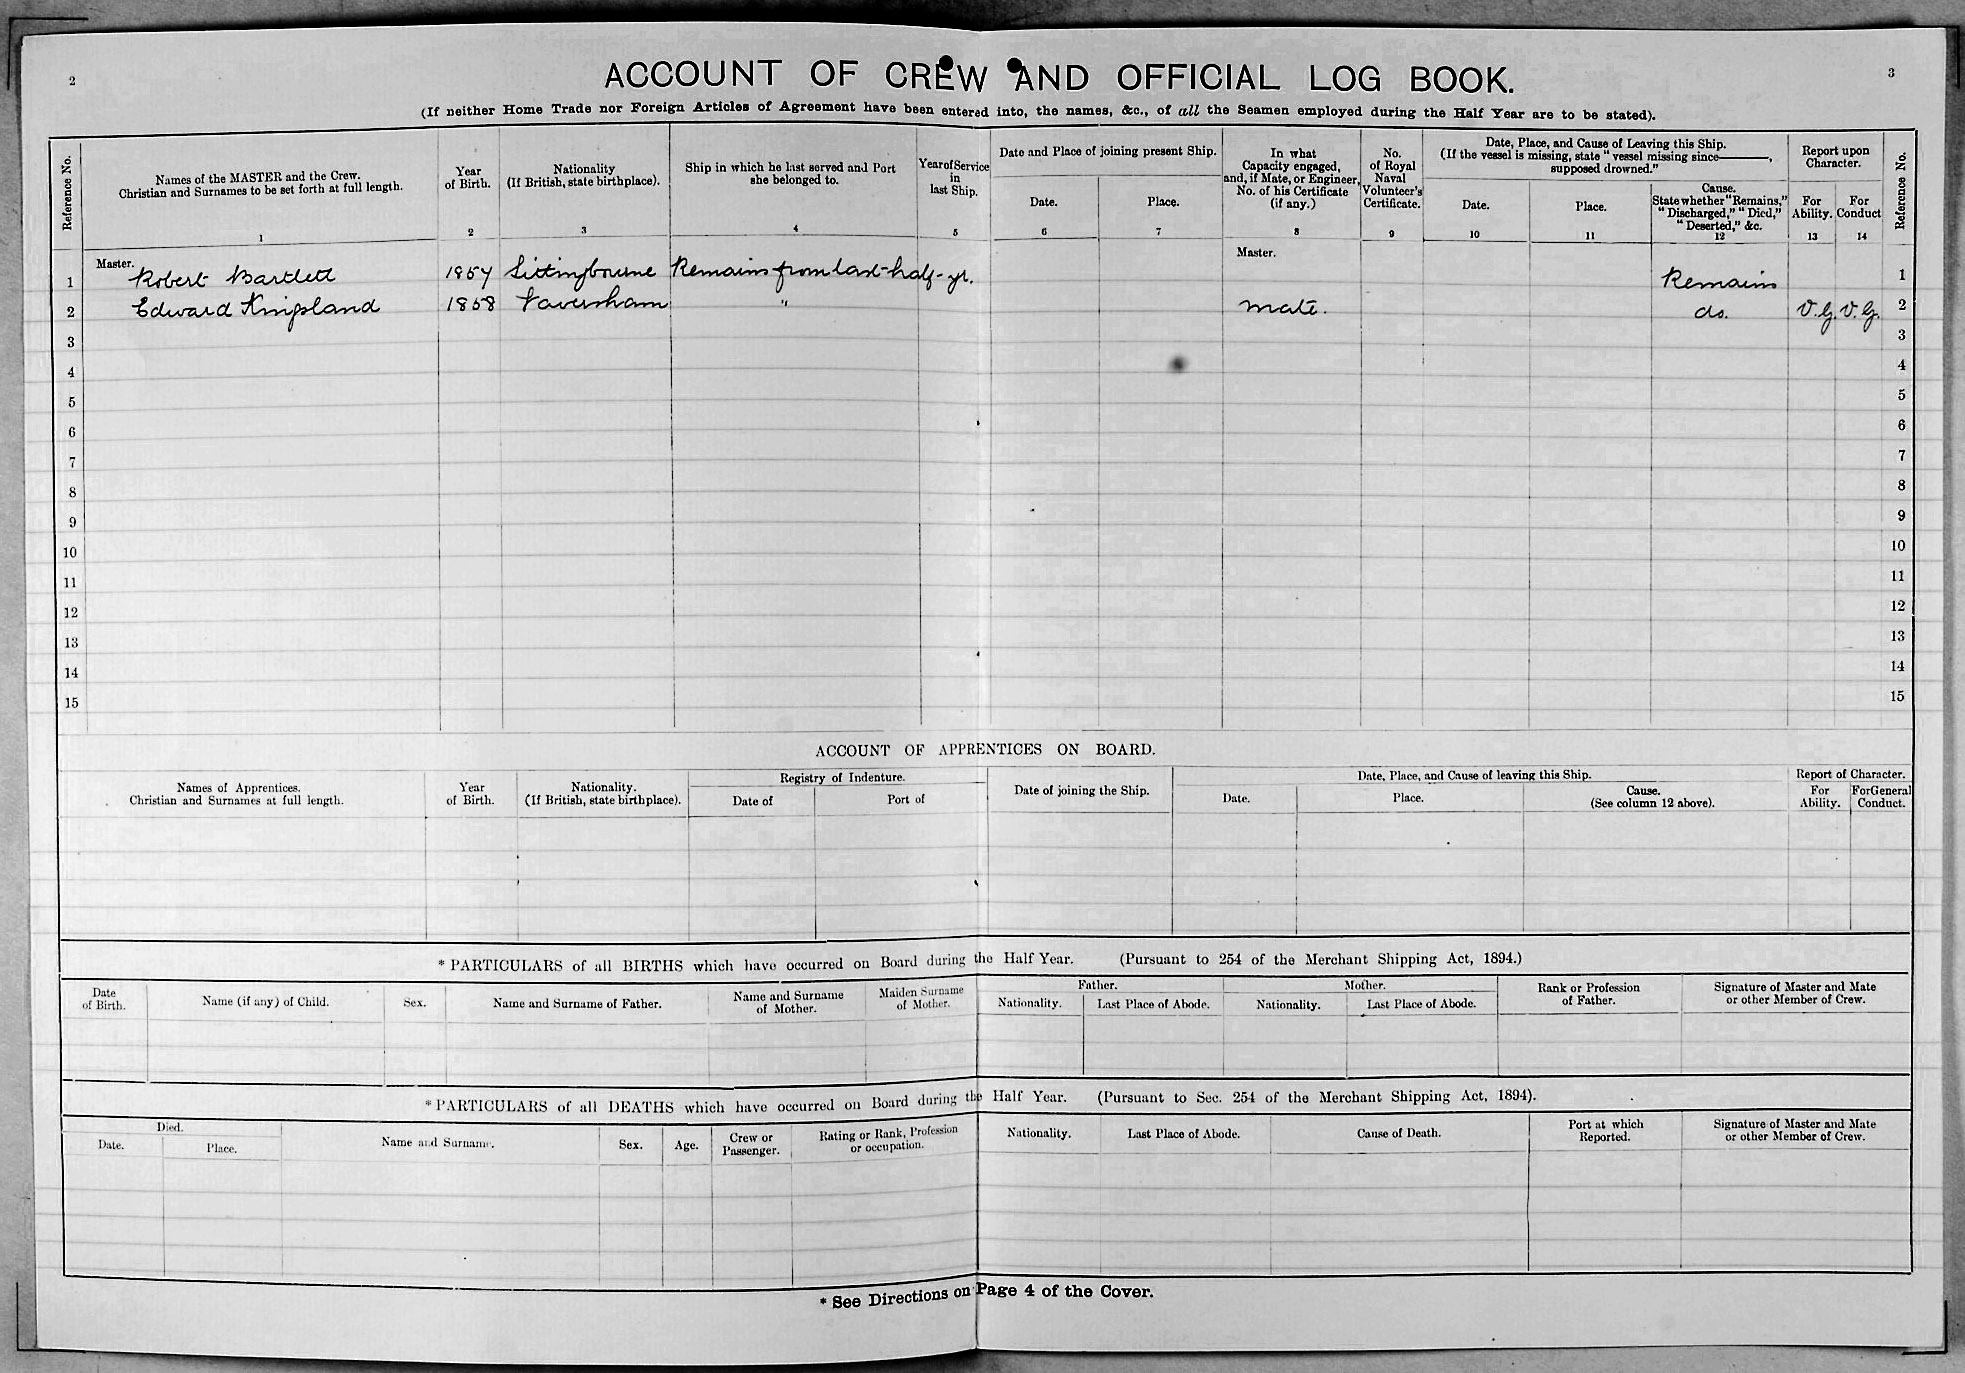 2
3
ACCOUNT OF CREW AND OFFICIAL LOG BOOK.
(If neither Home Trade nor Foreign Articles of Agreement have been entered into, the names, &c., of all the Seamen employed during the Half Year are to be stated).
Reference No.
Names of the MASTER and the Crew.
Christian and Surnames to be set forth at full length.
1
Year
of Birth.
2
Nationality
(If British, state birthplace).
3
Ship in which he last served and Port
she belonged to.
4
Year of Service
in
last Ship.
5
Date and Place of joining present Ship.
Date.
6
Place.
7
In what
Capacity engaged,
and, if Mate, or Engineer,
No. of his Certificate
(if any.)
8
No.
of Royal
Naval
Volunteer's
Certificate.
9
Date, Place, and Cause of Leaving this Ship.
(If the vessel is missing, state "vessel missing since———,
supposed drowned."
Date.
10
Place.
11
Cause.
State whether "Remains,"
"Discharged," "Died,"
"Deserted," &c.
12
Report upon
Character.
For
Ability.
13
For
Conduct
14
Reference No.
1 Master. Robert Bartlett 1857 Sittingbourne Remains from last half-yr. Master. Remains 1
2 Edward Kingsland 1858 Faversham " mate. do. V.G. V.G. 2
3 3
4 4
5 5
6 6
7 7
8 8
9 9
10 10
11 11
12 12
13 13
14 14
15 15
ACCOUNT OF APPRENTICES ON BOARD.
Names of Apprentices.
Christian and Surnames at full length.
Year
of Birth.
Nationality.
(If British, state birthplace).
Registry of Indenture.
Date of
Port of
Date of joining the Ship.
Date, Place, and Cause of leaving this Ship.
Date.
Place.
Cause.
(See column 12 above).
Report of Character.
For
Ability.
For General
Conduct.
* PARTICULARS of all BIRTHS which have occurred on Board during the Half Year. (Pursuant to 254 of the Merchant Shipping Act, 1894.)
Date
of Birth.
Name (if any) of Child.
Sex.
Name and Surname of Father.
Name and Surname
of Mother.
Maiden Surname
of Mother.
Father.
Nationality.
Last Place of Abode.
Mother.
Nationality.
Last Place of Abode.
Rank or Profession
of Father.
Signature of Master and Mate
or other Member of Crew.
* PARTICULARS of all DEATHS which have occurred on Board during the Half Year. (Pursuant to Sec. 254 of the Merchant Shipping Act, 1894).
Died.
Date.
Place.
Name and Surname.
Sex.
Age.
Crew or
Passenger.
Rating or Rank, Profession
or occupation.
Nationality.
Last Place of Abode.
Cause of Death.
Port at which
Reported.
Signature of Master and Mate
or other Member of Crew.
* See Directions on Page 4 of the Cover.